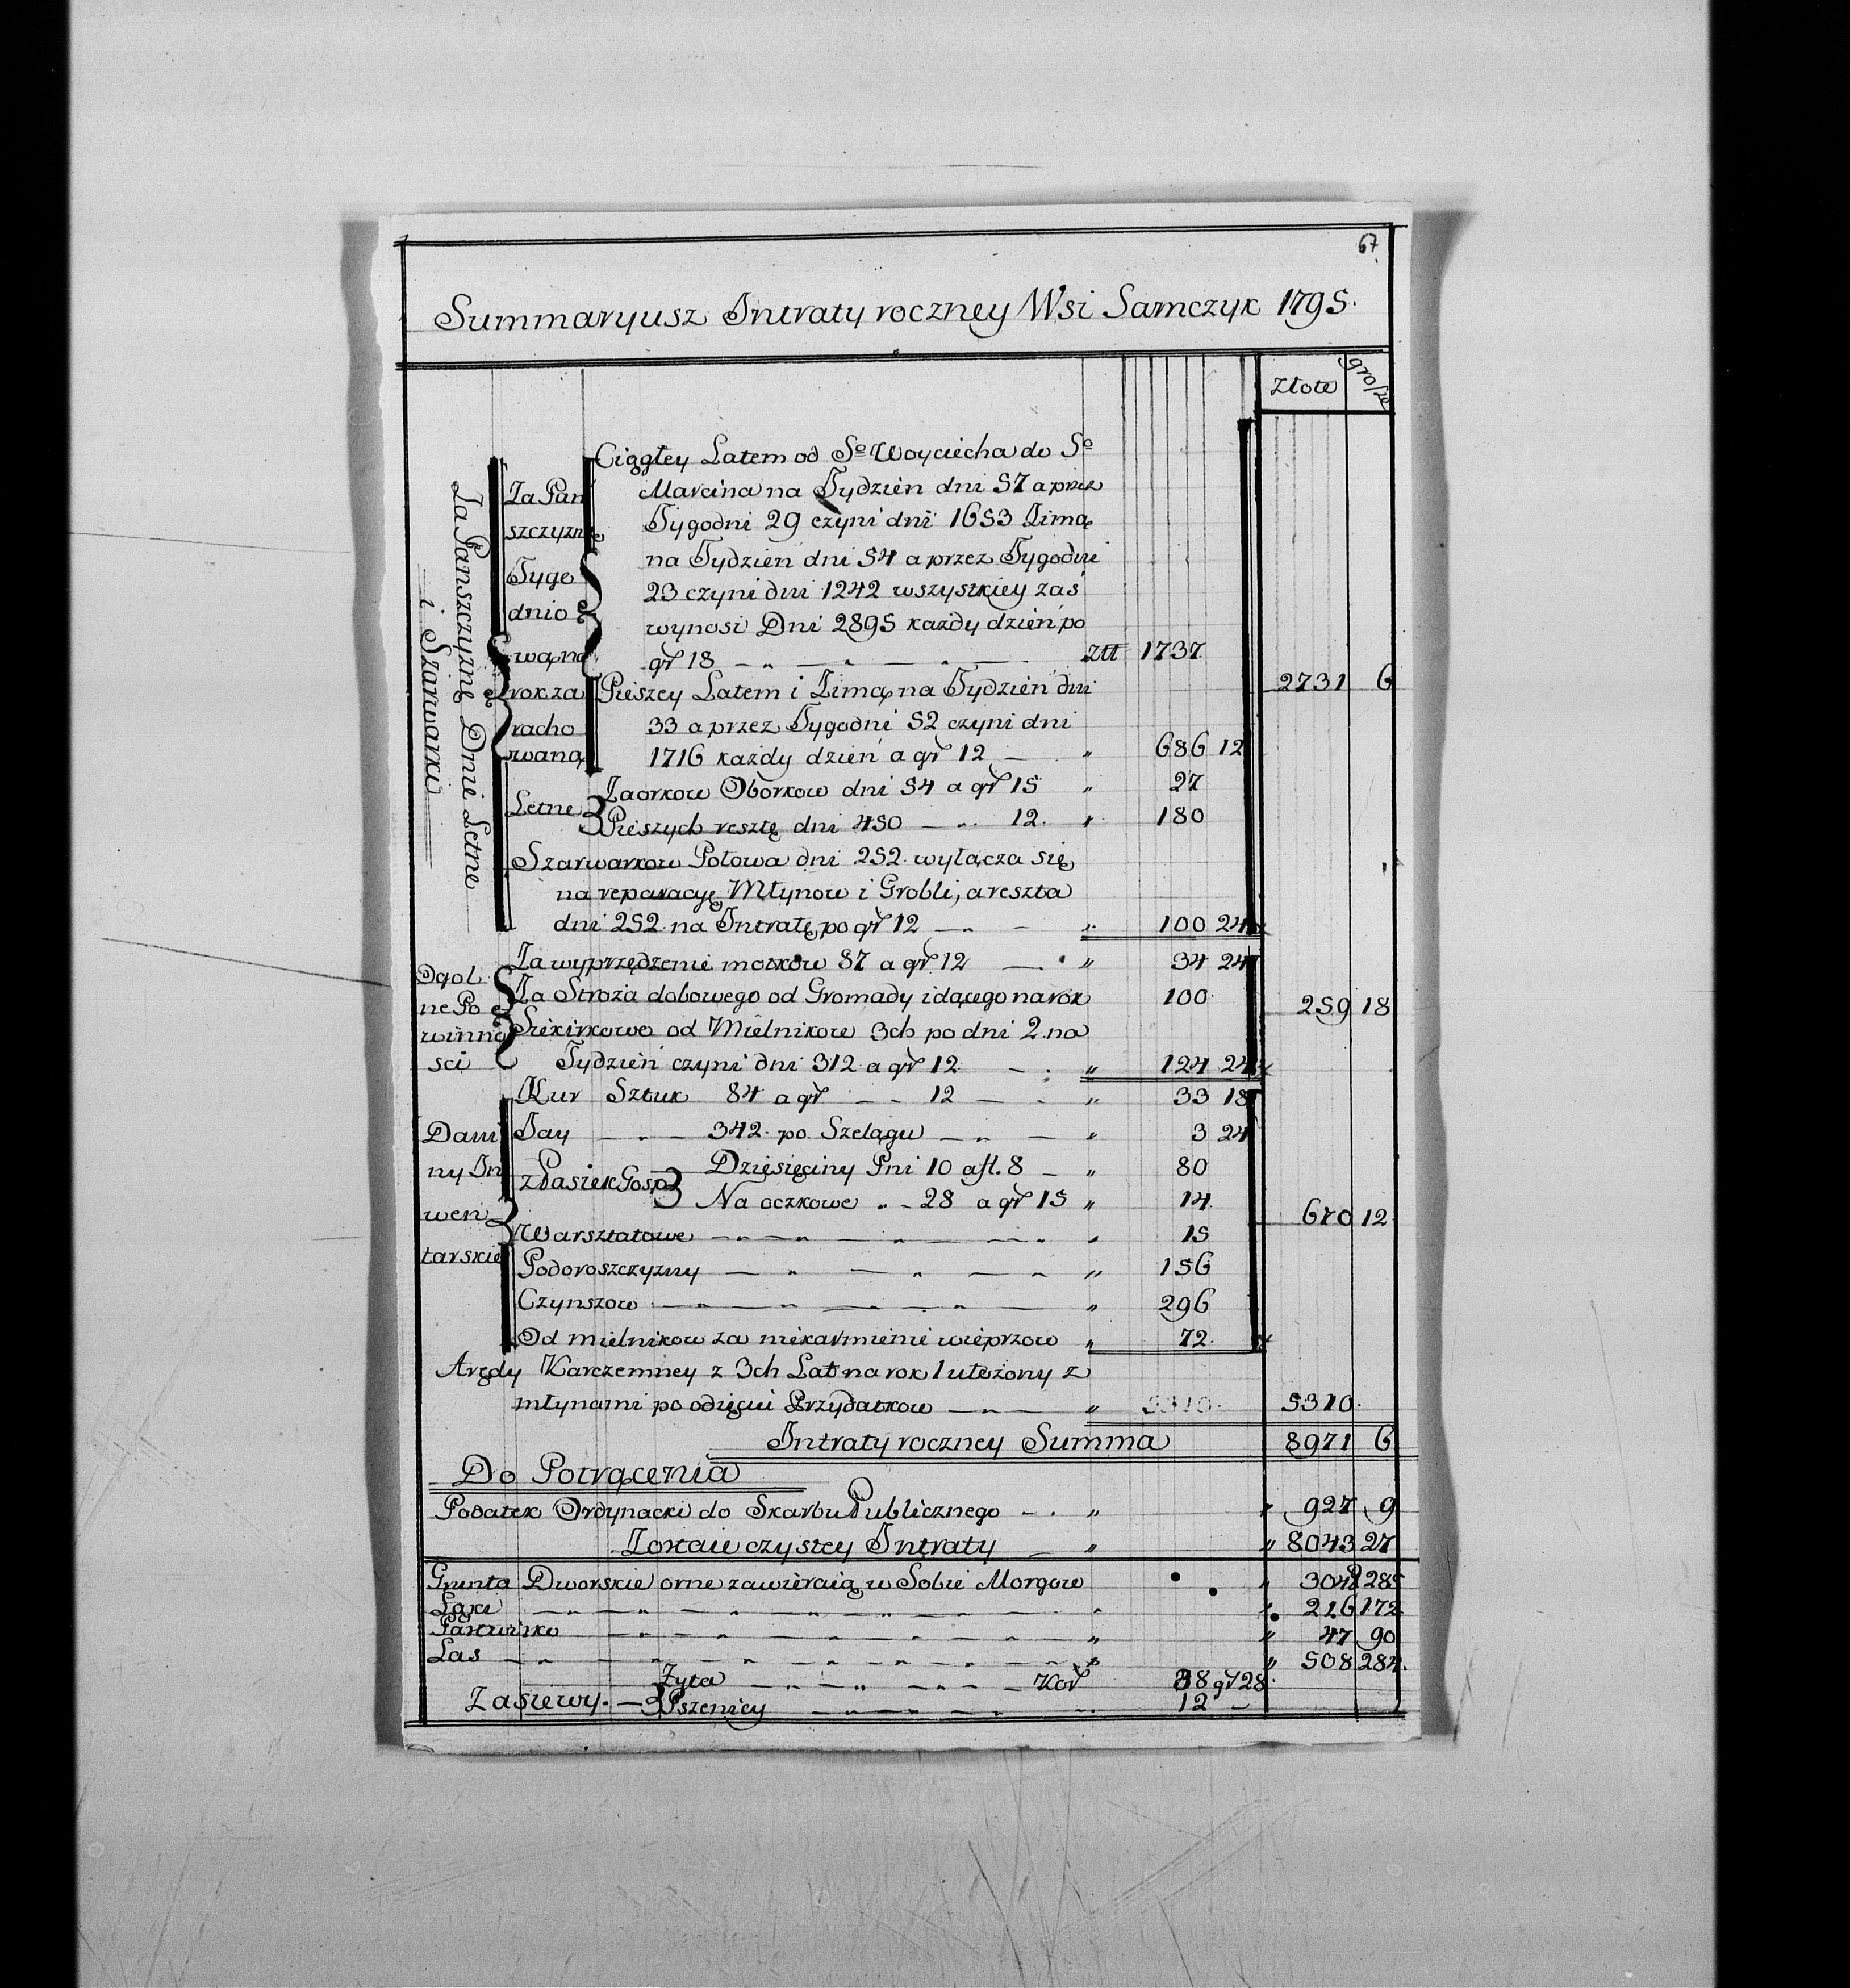 67
Summaryusz Intraty roczney Wsi Samczyk 1795.
złote grosze
Za Panszczyznę Dnie Letne
i Szarwarki
Za Pan
szczyznę
Tygo
dnio
wą na
rok za
racho
waną
Ciągłey Latem od So Woyciecha do So
Marcina na Tydzień dni 57 a przez
Tygodni 29 czyni dni 1653 Zimą
na Tydzień dni 54 a przez Tygodni
23 czyni dni 1242 wszystkiey zaś
wynosi Dni 2895 każdy dzień po
gr 18 — „ — „ — „ — złt 1737
Pieszey Latem i Zimą na Tydzień dni 2731 6
33 a przez Tygodni 52 czyni dni
1716 każdy dzień a gr 12 — „ 686 12
Letne
Zaorkow Oborkow dni 54 a gr 15 „ 27
Pieszych resztę dni 450 — „ 12. „ 180
Szarwarkow Połowa dni 252. wyłącza się
na reparacyę Młynow i Grobli, a reszta
dni 252. na Intratę po gr 12 — „ — „ 100 24
Ogol
ne Po
winno
sci
Za wyprzędzenie motkow 87 a gr 12 — „ 34 24
Za Stroża dobowego od Gromady idącego na rok 100 259 18
Siekirkowe od Mielnikow 3ch po dni 2. na
Tydzień czyni dni 312 a gr 12 — „ 124 24
Dani
ny In
wen
tarskie
Kur Sztuk 84 a gr — 12 — „ 33 18
Jay — „ — 342. po Szelągu — „ — „ 3 24
z Pasiek Gosp
Dziesięciny Pni 10 a fl. 8 — „ 80
Na oczkowe „ 28 a gr 15 „ 14.
670 12
Warsztatowe — „ — „ — „ — „ 15
Podoroszczyzny — „ — „ — „ „ 156
Czynszow — „ — „ — „ — „ — „ 296
Od mielnikow za niekarmienie wieprzow „ 72.
Arędy Karczemney z 3ch Lat na rok 1 ułożony z
młynami po odięciu Przydatkow — „ — „ 5310. 5310.
Intraty roczney Summa 8971 6
Do Potrącenia
Podatek Ordynacki do Skarbu Publicznego — . „ „ 927 9
Zostaie czystey Intraty — „ „ 8043 27
Grunta Dworskie orne zawieraią w Sobie Morgow „ 304 285
Łąki — „ — „ — „ — „ 216 172
Pastwisko — „ — „ — „ — „ 47 90
Las — „ — „ — „ — „ 508 284.
Zasiewy. —
Żyta — „ — „ — „ — Kor 38 gr 28.
Pszenicy — „ — „ — „ 12 —